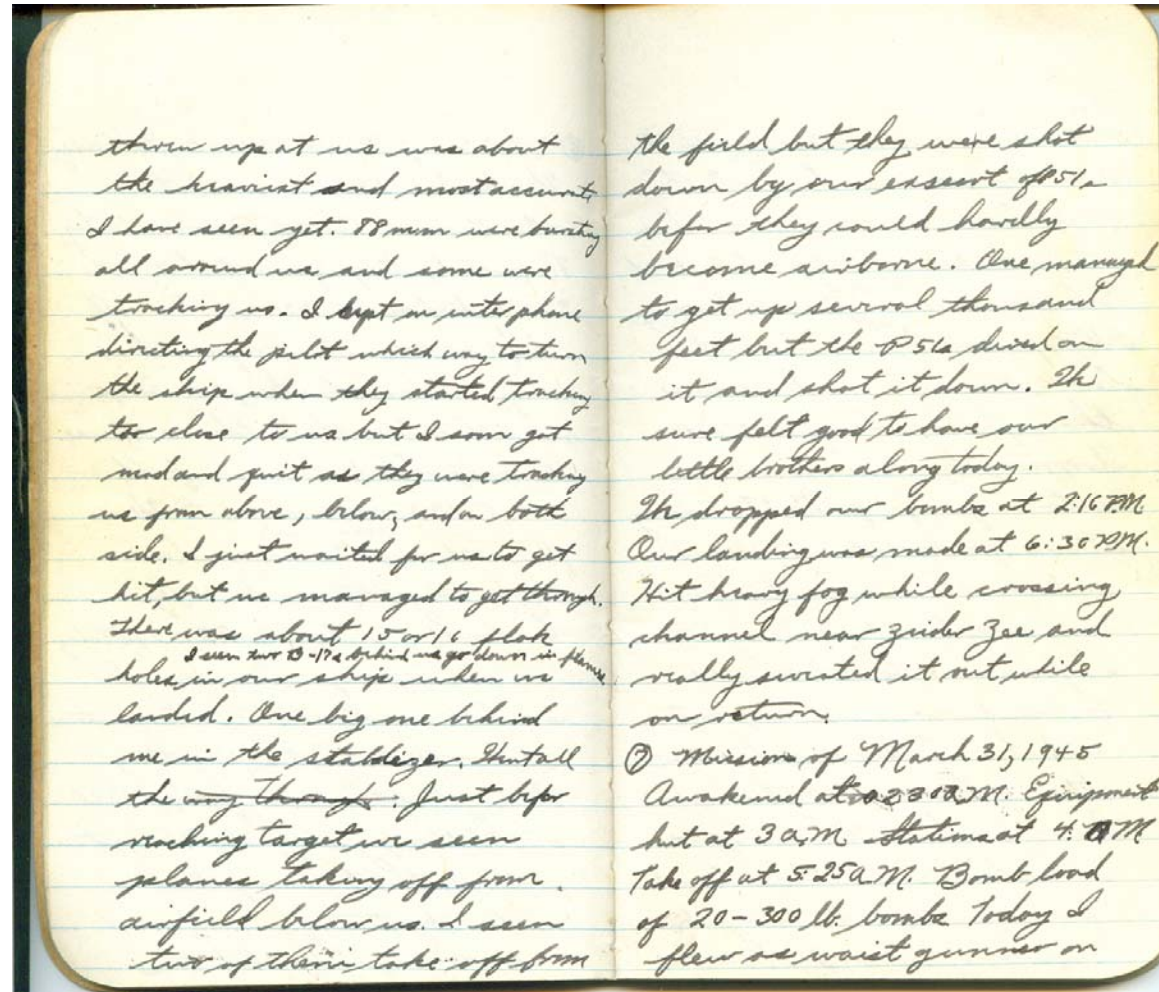 thrown up at us was about
the heaviest and most accurate
I have seen yet. 88 mm were bursting
all around us and some were
tracking us. I kept on interphone
directing the pilot which way to turn
the ship when they started tracking
too close to us but I soon got
mad and quit as they were tracking
us from above, below, and on both
side. I just waited for us to get
hit, but we managed to get through.
There was about 15 or 16 flak
I seen two B-17s behind us go down in flames.
holes in our ship when we
landed. One big one behind
me in the stabilizer. Went all
the way through. Just befor
reaching target we seen
planes taking off from
airfield below us. I seen
two of them take off from
the field but they were shot
down by our esscort of P51s
befor they could hardly
become airborne. One managed
to get up several thousand
feet but the P51s dived on
it and shot it down. It
sure felt good to have our
little brothers along today.
We dropped our bombs at 2:16 P.M.
Our landing was made at 6:30 P.M.
Hit heavy fog while crossing
channel near Zuider Zee and
really sweated it out while
on return.
⑦ Mission of March 31, 1945
Awakened at 0230 A.M. Equipment
hut at 3 a.m Stations at 4: M
Take off at 5:25 A.M. Bomb load
of 20-300 lb. bombs Today I
flew as waist gunner on